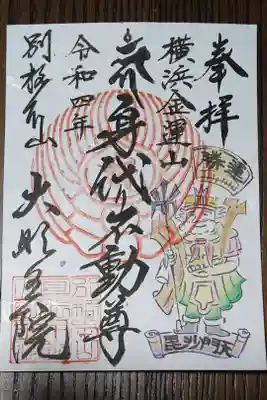 奉拝
横浜金運山
身代不動尊
令和四年
別格本山
大明王院
開運
勝
毘沙門天